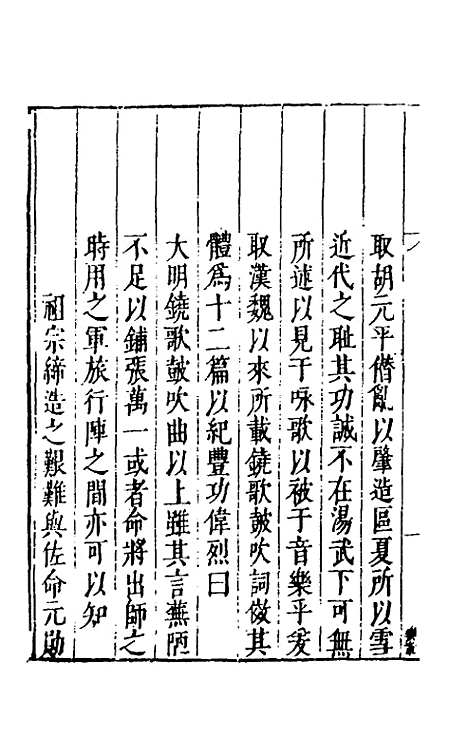 取胡元平僭亂以肇造區夏所以雪
近代之耻其功誠不在湯武下可無
所述以見于咏歌以被于音樂乎爰
取漢魏以來所載鐃歌鼓吹詞倣其
體爲十二篇以紀豐功偉烈曰
大明鐃歌鼓吹曲以上雖其言蕪陋
不足以鋪張萬一或者命將出師之
時用之軍旅行陣之間亦可以知
祖宗締造之艱難與佐命元勛